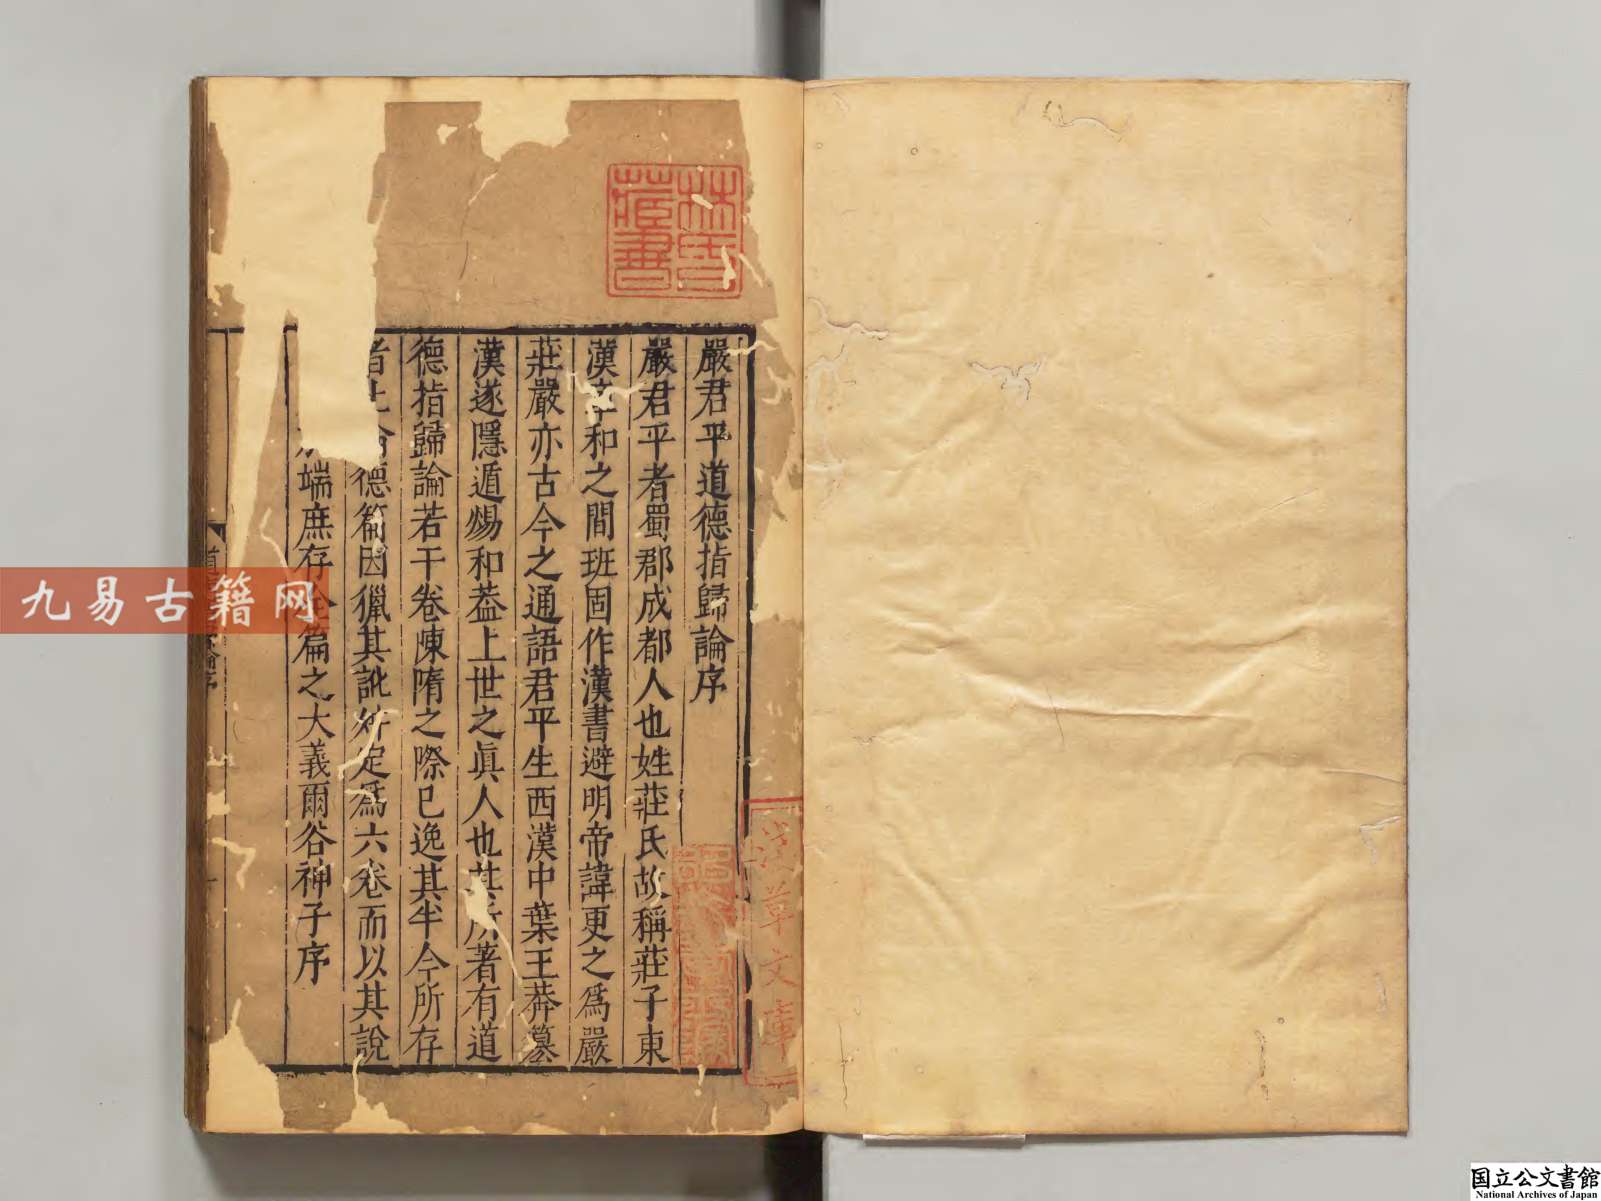 嚴君平道德指歸論序
嚴君平者蜀郡成都人也姓莊氏故稱莊子東
漢章和之間班固作漢書避明帝諱更之爲嚴
莊嚴亦古今之通語君平生西漢中葉王莽篡
漢遂隱遁煬和葢上世之眞人也其所著有道
德指歸論若干卷陳隋之際已逸其半今所存
者止論德篇因獵其訛舛定爲六卷而以其說
端庶存全篇之大義爾谷神子序
林氏藏書
淺草文庫
九易古籍网
国立公文書館
National Archives of Japan